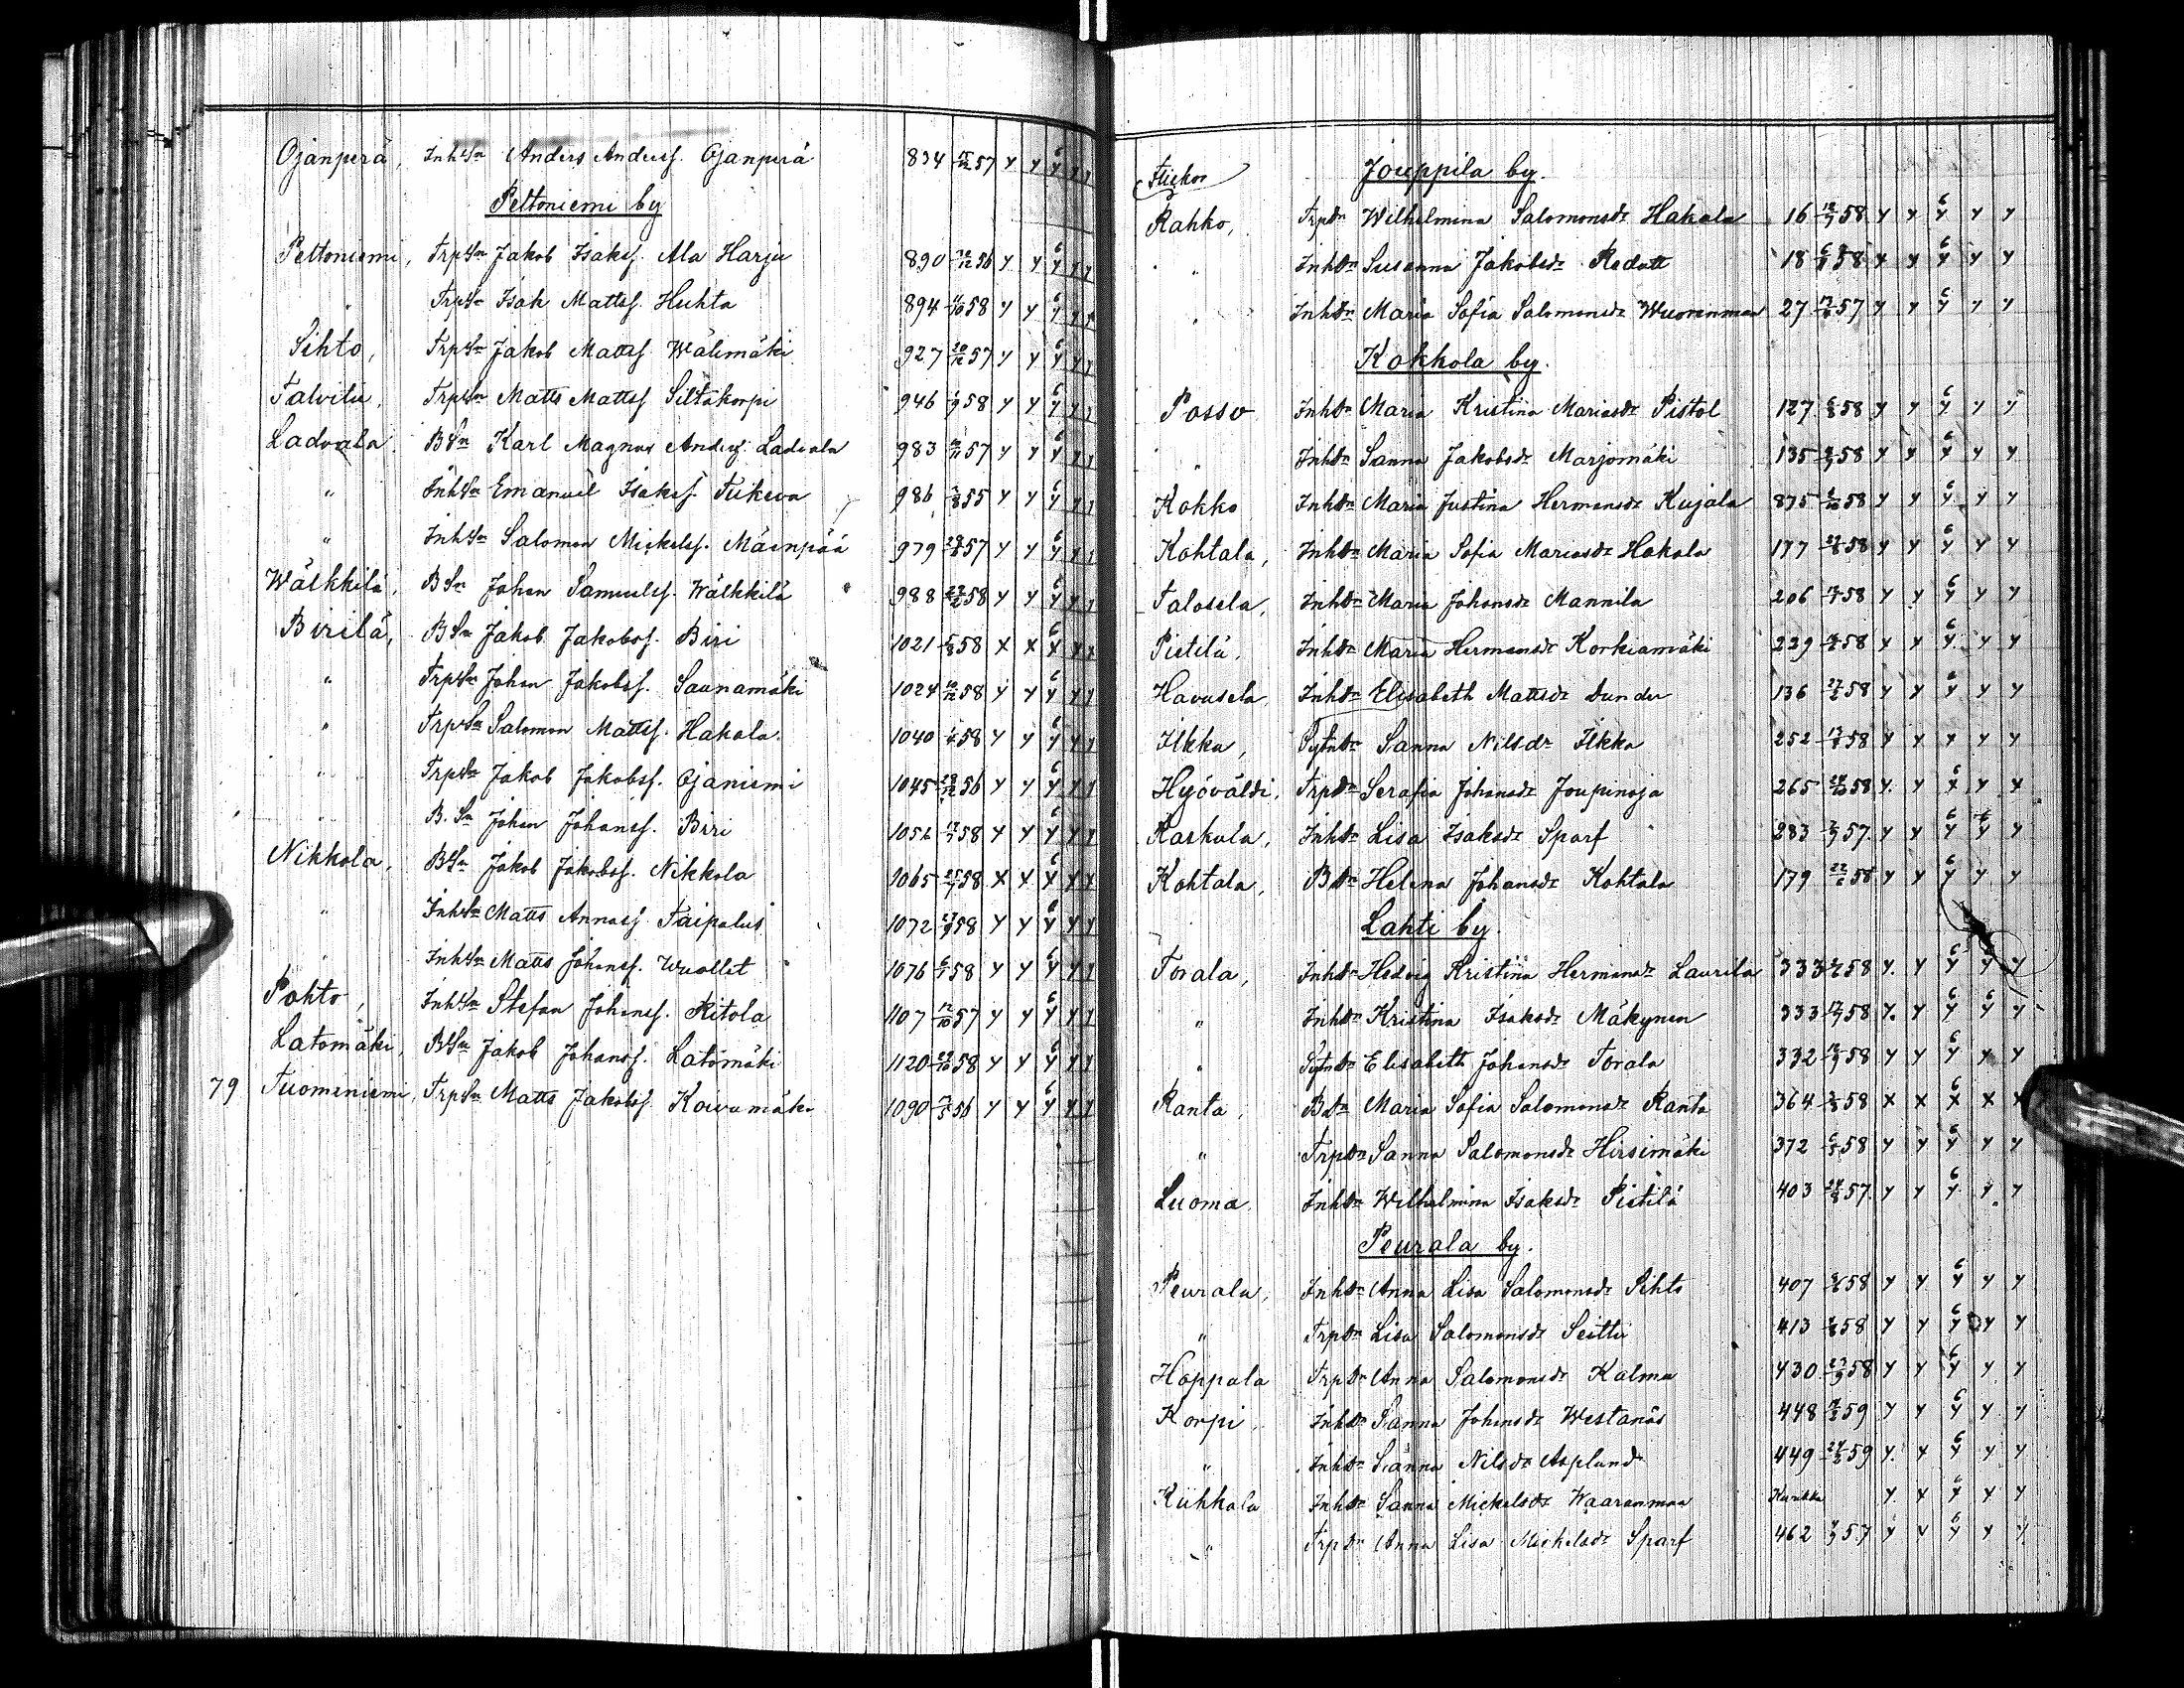 Ojanperä, InhSn Anders Andersf. Ojanperä 834 57 y y 6 y y y
Peltoniemi by
Peltoniemi, TrpSn Jakob Isaksf. Ala Harju 890 56 y y 6 y y y
" TrpSn Isak Mattsf. Huhta 894 58 y y 6 y y y
Sihto, TrpSn Jakob Mattsf. Wälimäki 927 57 y y 6 y y y
Talvitie, TrpSn Matts Mattsf Siltakorpi 946 58 y y 6 y y y
Ladvala BSn Karl Magnus Andersf. Ladvala 983 57 y y 6 y y y
" InhSn Emanuel Isaksf. Tiikeva 986 55 y y 6 y y y
" InhSn Salomon Mickelsf. Mäenpää 979 57 y y 6 y y y
Wälkkilä, BSn Johan Samuelsf. Wälkkilä 988 58 y y 6 y y y
Birilä, BSn Jakob Jakobsf. Biri 1021 58 x x 6 x x x
" TrpSn Johan Jakobsf. Saunamäki 1024 58 y y 6 y y y
" TrpSn Salomon Mattsf. Hakala 1040 58 y y 6 y y y
" TrpSn Jakob Jakobsf. Ojaniemi 1045 56 y y 6 y y y
" B.Sn Johan Johansf. Biri 1052 58 y y 6 y y y
Nikkola, BSn Jakob Jakobsf. Nikkola 1065 58 x y 6 x y x
" InhSn Matts Annasf. Taipalus 1072 58 y y 6 y y y
" InhSn Matts Johansf. Wuollet 1076 58 y y 6 y y y
Pohto, InhSn Stefan Johansf. Ritola 1107 12/10 57 y y 6 y y y
Latomäki, BSn Jakob Johansf. Latomäki 1120 58 y y 6 y y y
79 Tuominiemi, TrpSn Matts Jakobsf Koivumäki 1090 56 y y 6 y y y
Flickor Jouppila by.
Rahko, TrpDr Wilhelmina Salomonsdr Hakala 16 58 y y 6 y y y
" InhDr Susanna Jakobsdr Radott 18 58 y y 6 y y y
" InhDr Maria Sofia Salomonsdr Wuorenmaa 27 57 y y 6 y y y
Kokkola by.
Posso InhDr Maria Kristina Mariasdr Pistol 127 58 y y 6 y y y
" InhDr Sanna Jakobsdr Marjomäki 135 58 y y 6 y y y
Kokko InhDr Maria Justina Hermansdr Kujala 875 58 y y 6 y y y
Kohtala, InhDr Maria Sofia Mariasdr Hakala 177 58 y y 6 y y y
Talosela, InhDr Maria Johansdr Mannila 206 58 y y 6 y y y
Pietilä, InhDr Maria Hermansdr Korkiamäki 229 58 y y 6 y y y
Havusela, InhDr Elisabeth Mattsdr Dunder 136 58 y y 6 y y y
Ilkka, Sanna Nilsdr Ilkka 252 58 y y y y y
Hyöväldi, TrpDr Serafia Johansdr Joupinoja 265 58 y. y 6 x y x
Raskula, InhDr Lisa Isaksdr Sparf 283 57. y y 6 y y y
Kohtala, BDr Helena Johansdr Kohtala 179 58 y y 6 y y y
Lahti by.
Torala, InhDr Hedvig Kristina Hermansdr Laurila 333 58 y. y 6 y y y
" InhDr Kristina Isaksdr Mäkynen 333 58 y. y 6 y 6 y y
" Elisabeth Johansdr Torala 332 58 y y 6 y y y
Ranta, BDr Maria Sofia Salomonsdr Ranta 364 58 x x 6 x x x
" TrpDr Sanna Salomonsdr Hirsimäki 372 58 y y 6 y y y
Luoma InhDr Wilhelmina Isaksdr Pietilä 403 57. y y 6 y y y
Peurala by.
Peurala, InhDr Anna Lisa Salomonsdr Sihto 407 58 y y 6 y y y
" TrpDr Lisa Salomonsdr Seitti 413 58 y y 6 y y y
Hoppala TrpDr Anna Salomonsdr Kalma 430 58 y y 6 y y y
Korpi, InhDr Sanna Johansdr Westanäs 448 59 y y 6 y y y
" InhDr Sanna Nilsdr Asplund 449 59 y. y 6 y y y
Kiikkala InhDr Sanna Mickelsdr Waaranmaa Kurikka y. y 6 y y y
" TrpDr Anna Lisa Mickelsdr Sparf 462 57 y y 6 y y y